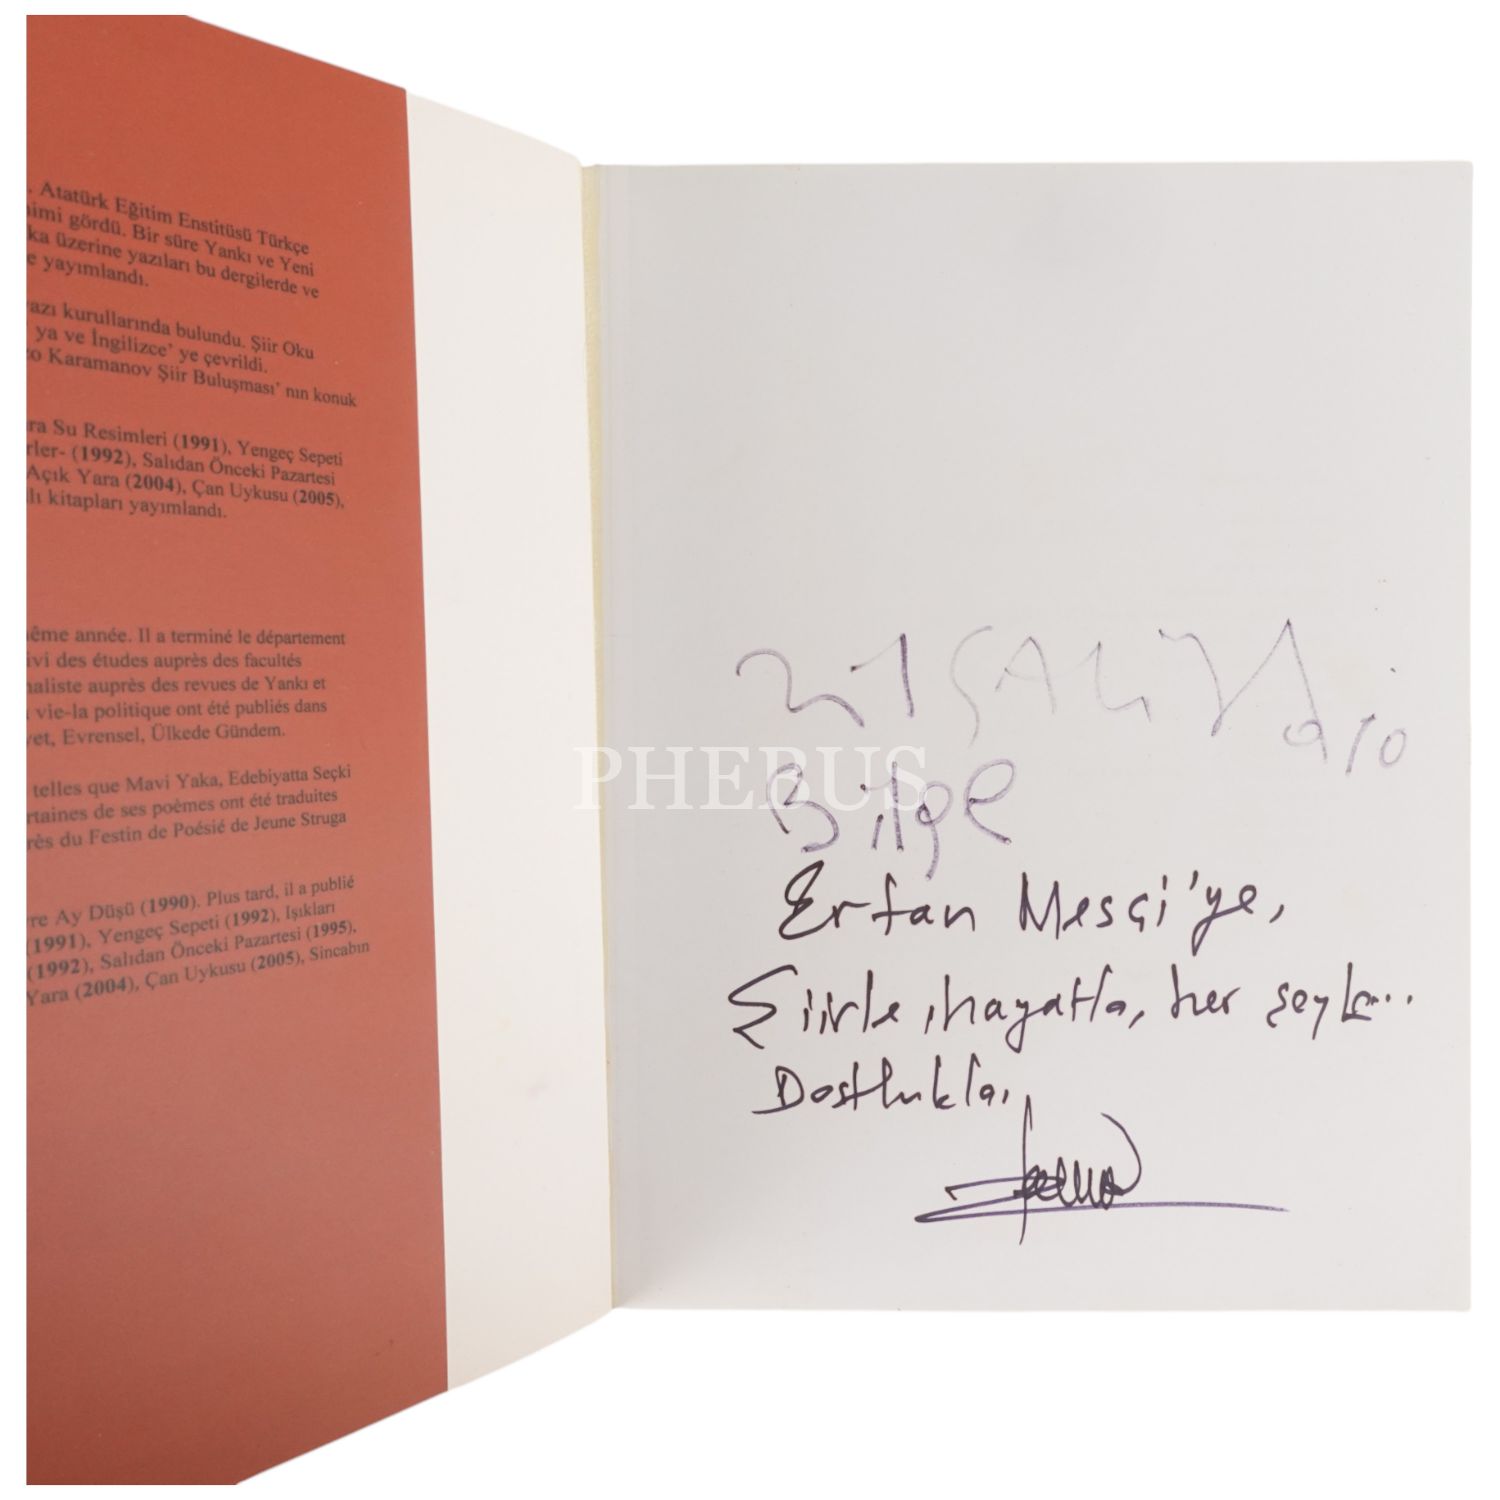 . Atatürk Eğitim Enstitüsü Türkçe
nimi gördü. Bir süre Yankı ve Yeni
ka üzerine yazıları bu dergilerde ve
e yayımlandı.
yazı kurullarında bulundu. Şiir Oku
' ya ve İngilizce' ye çevrildi.
co Karamanov Şiir Buluşması' nın konuk
ra Su Resimleri (1991), Yengeç Sepeti
rler- (1992), Salıdan Önceki Pazartesi
Açık Yara (2004), Çan Uykusu (2005),
lı kitapları yayımlandı.
ême année. Il a terminé le département
ivi des études auprès des facultés
naliste auprès des revues de Yankı et
vie-la politique ont été publiés dans
yet, Evrensel, Ülkede Gündem.
telles que Mavi Yaka, Edebiyatta Seçki
rtaines de ses poèmes ont été traduites
rès du Festin de Poésié de Jeune Struga
re Ay Düşü (1990). Plus tard, il a publié
(1991), Yengeç Sepeti (1992), Işıkları
(1992), Salıdan Önceki Pazartesi (1995),
Yara (2004), Çan Uykusu (2005), Sincabın
PHEBUS
Bilge
Erfan Mesçi'ye,
Şiirle, hayatla, her şeyle...
Dostlukla,